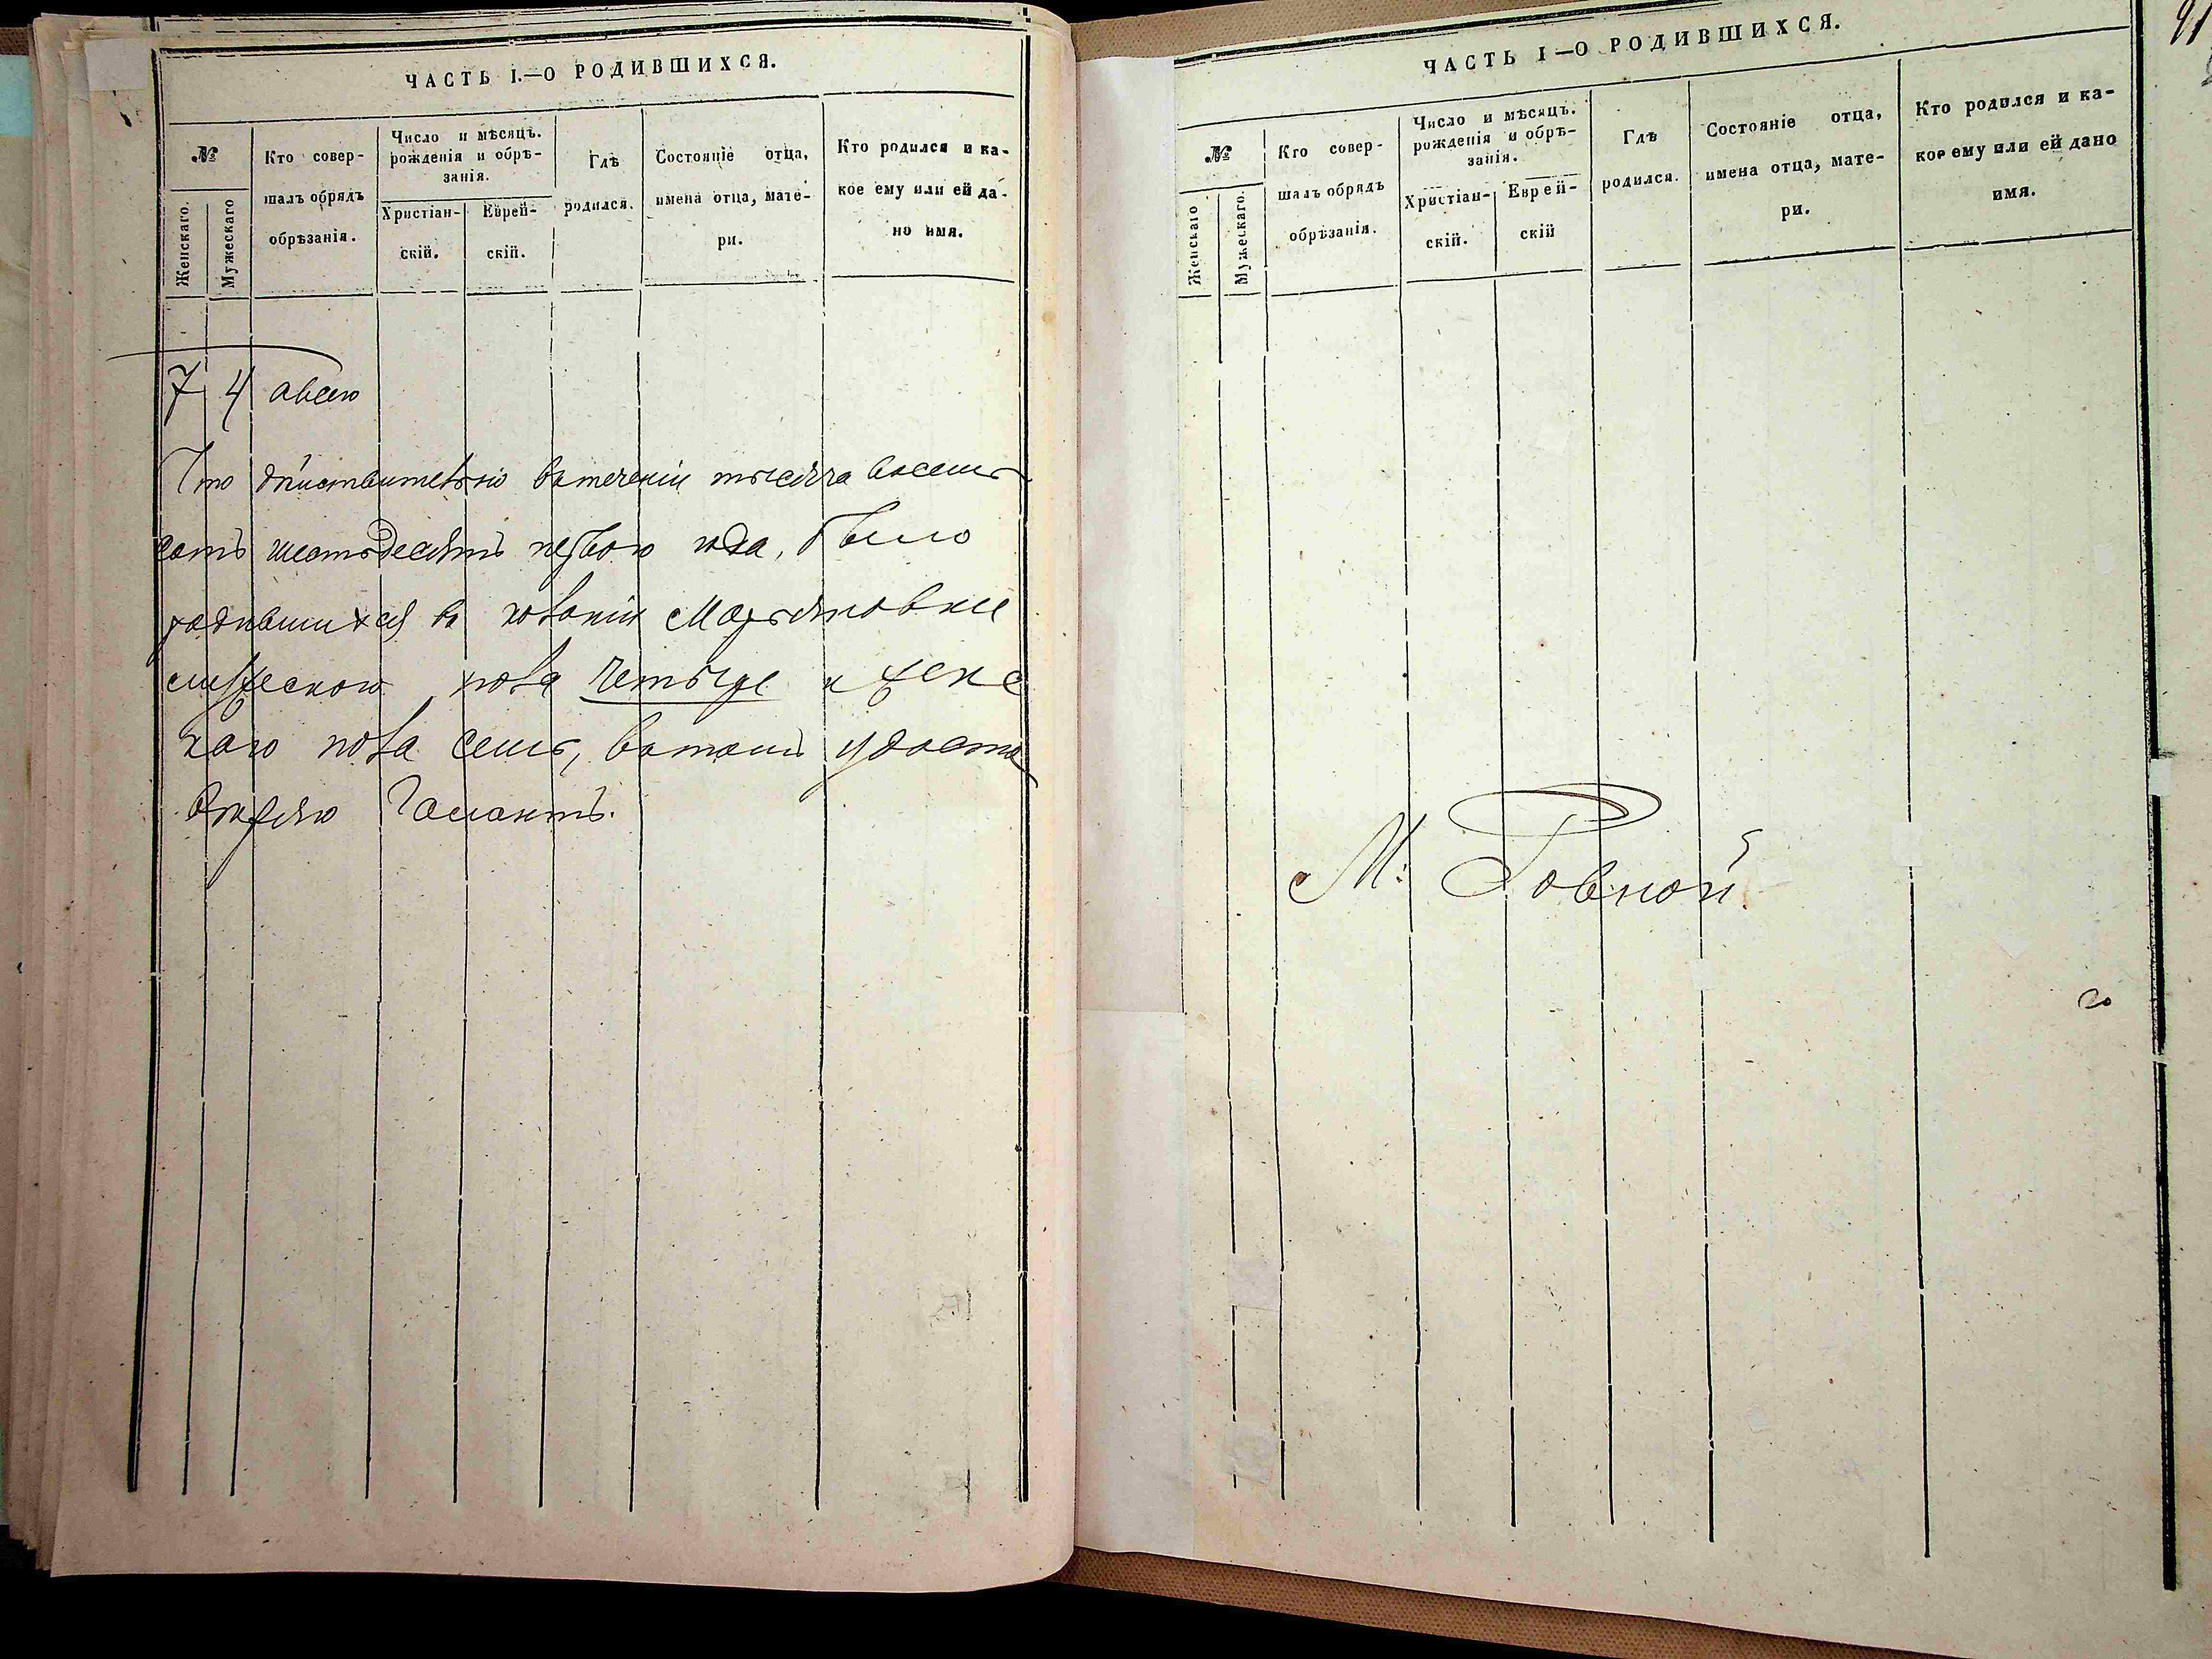 ЧАСТЬ I.—О РОДИВШИХСЯ.
№
Женскаго.
Мужескаго
Кто совер-
шалъ обрядъ
обрѣзанія.
Число и мѣсяцъ.
рожденія и обрѣ-
занія.
Христіан-
скій.
Еврей-
скій.
Гдѣ
родился.
Состояніе отца,
имена отца, мате-
ри.
Кто родился и ка-
кое ему или ей да-
но имя.
7 4 а всего
Что дѣйствительно въ теченіи тысяча восемь
сотъ шестьдесятъ первого года, было
родившихся въ колоніи Марьяновки
мужескаго пола четыре и женс
каго пола семь, въ томъ удосто
веряю
ЧАСТЬ I—О РОДИВШИХСЯ.
№
Женскаго
Мужескаго.
Кто совер-
шалъ обрядъ
обрѣзанія.
Число и мѣсяцъ.
рожденія и обрѣ-
занія.
Христіан-
скій.
Еврей-
скій
Гдѣ
родился.
Состояніе отца,
имена отца, мате-
ри.
Кто родился и ка-
кое ему или ей дано
имя.
М: Ровной